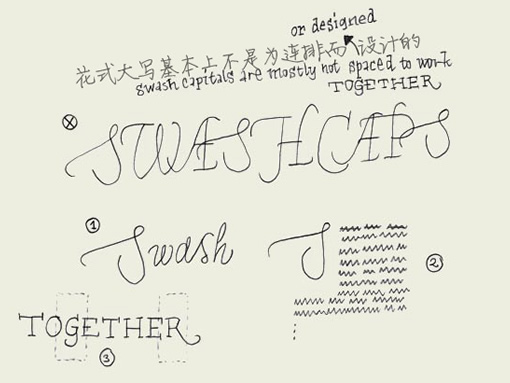 or designed
花式大写基本上不是为连排而设计的
swash capitals are mostly not spaced to work
TOGETHER
X
SWASH CAPS
1
Swash
S
2
TOGETHER
3